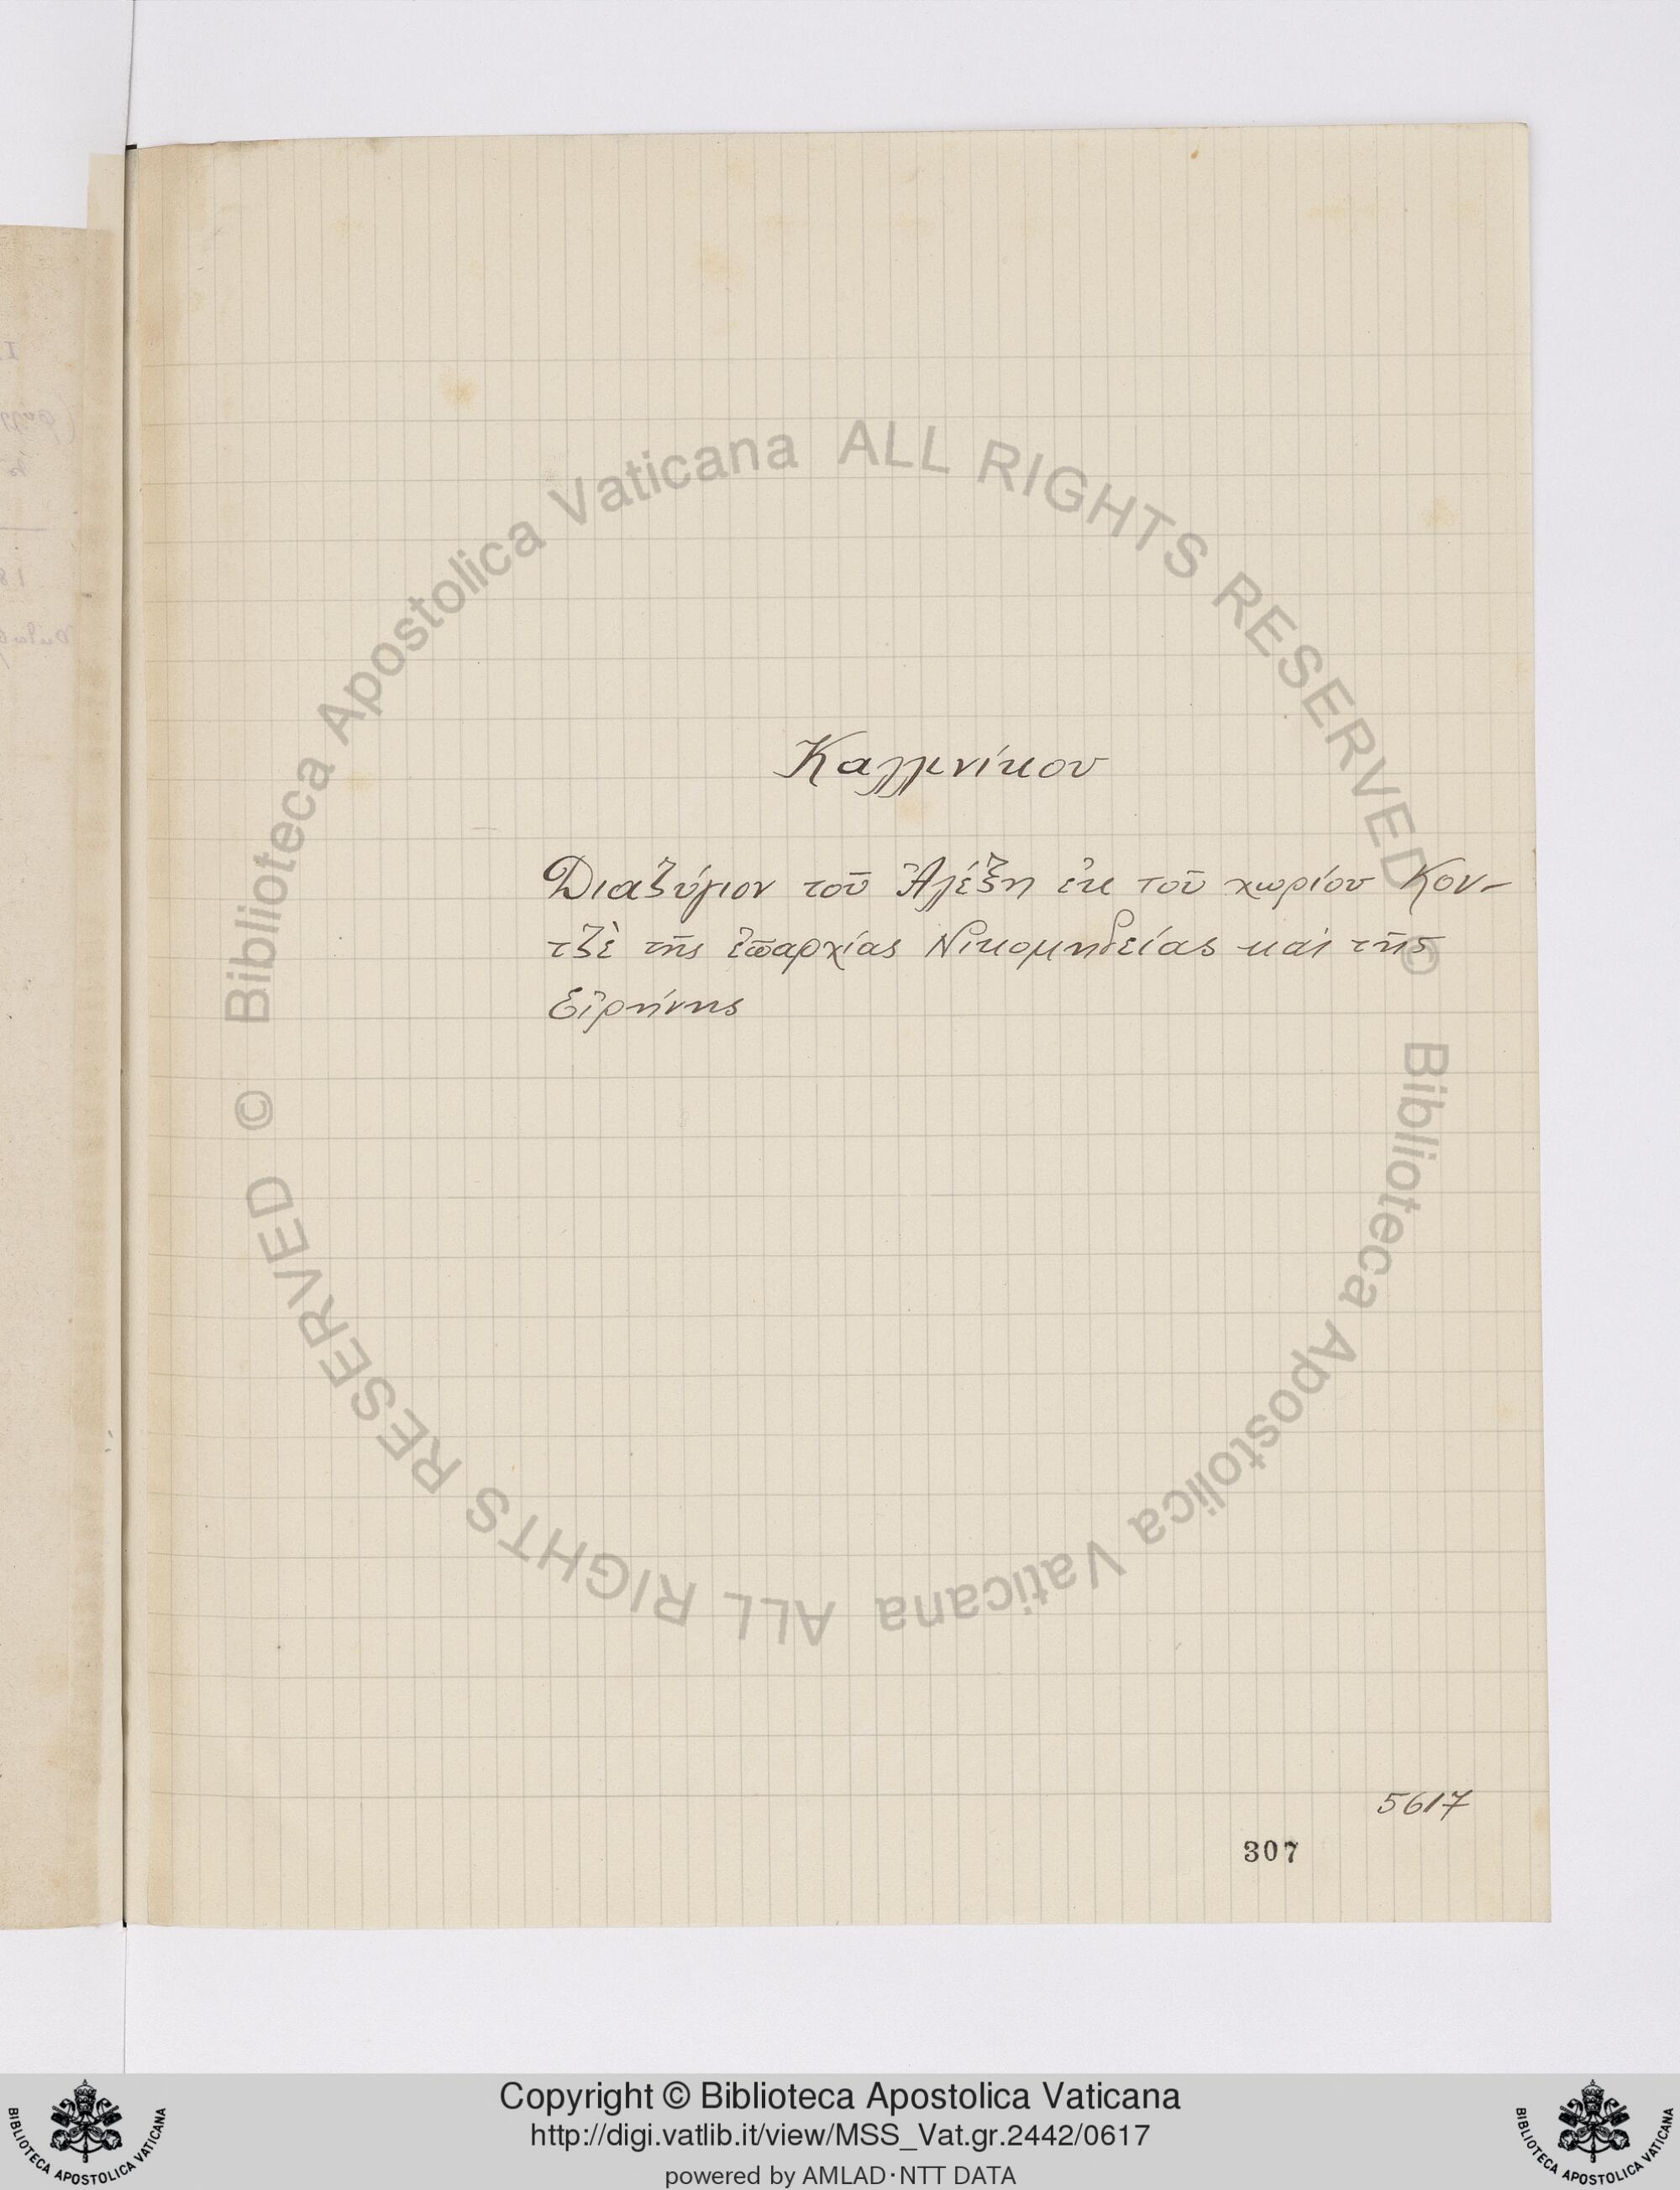 Καλλινίκου
Διαζύγιον τοῦ Ἀλέξη ἐκ τοῦ χωρίου Κον-
τζὲ τῆς ἐπαρχίας Νικομηδείας καὶ τῆς
Εἰρήνης
5617
307
Biblioteca Apostolica Vaticana ALL RIGHTS RESERVED ©
Biblioteca Apostolica Vaticana ALL RIGHTS RESERVED ©
Copyright © Biblioteca Apostolica Vaticana
http://digi.vatlib.it/view/MSS_Vat.gr.2442/0617
powered by AMLAD·NTT DATA
BIBLIOTECA APOSTOLICA VATICANA
BIBLIOTECA APOSTOLICA VATICANA